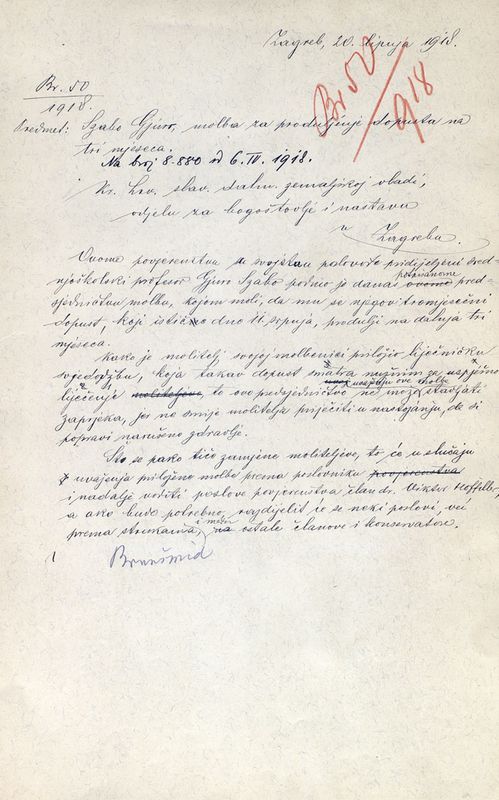 Zagreb, 20. lipnja 1918.
Br. 50
918
Br. 50
1918.
Predmet: Szabo Gjuro, molba za produljenje dopusta na
tri mjeseca.
Na broj 8.880 od 6. IV. 1918.
Kr. hrv. slav. dalm. zemaljskoj vladi,
odjelu za bogoštovlje i nastavu
u Zagrebu.
Ovome povjerenstvu u svojstvu poslovođe pridijeljeni sred-
njoškolski profesor Gjuro Szabo podnio je danas ovome potpisanome pred-
sjedničtvu molbu, kojom moli, da mu se njegov tromjesečni
dopust, koji ističe dne 11. srpnja, produlji na daljnja tri
mjeseca.
Kako je molitelj svojoj molbenici priložio liječničku
svjedodžbu, koja takav dopust smatra nužnim za uspješno
liječenje moliteljevo, to ovo predsjedništvo uvaženju ove molbe ne može stavljati
zaprjeka, jer ne smije molitelja priječiti u nastojanju, da si
popravi narušeno zdravlje.
Što se pako tiče zamjene moliteljeve, to će u slučaju
uvaženja priložene molbe prema poslovniku povjerenstva
i nadalje voditi poslove povjerenstva član dr. Viktor Hoffiller
a ako bude potrebno, razdijelit će se neki poslovi, već
prema strukama, i među na ostale članove i konservatore.
Brunšmid